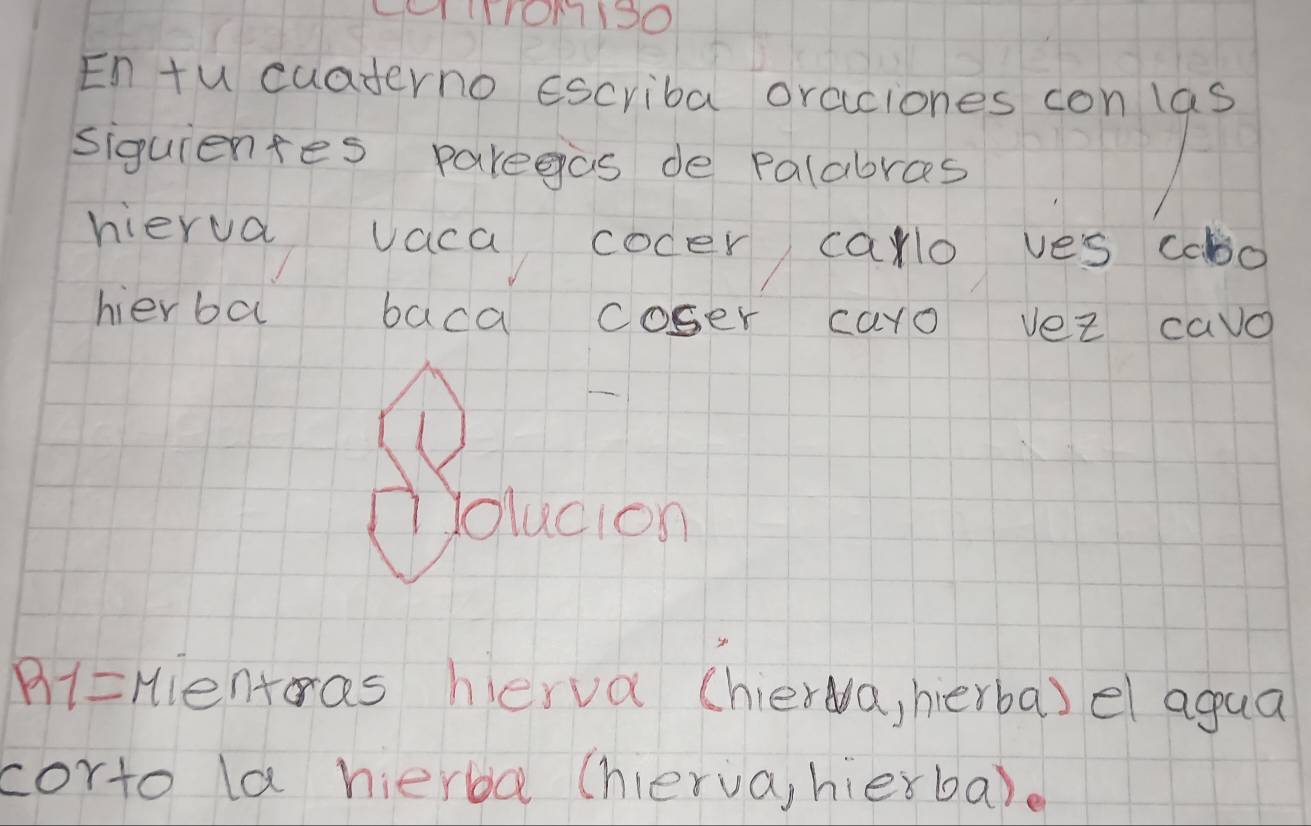 En tu cuaderno escriba oraciones con las
siguientes paregas de palabras
hierva, vaca, cocer, carlo, ves / cabo
hierba baca coser cayo vez cavo
Solucion
R1=Mientras hierva (hierva, hierba) el agua
corto la hierba (hierva, hierba).